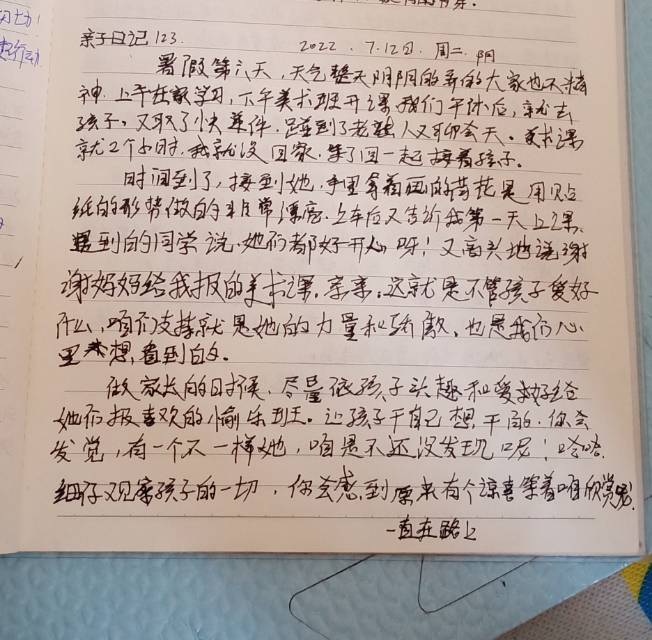 亲子日记123. 2022.7.12日.周二.阴
暑假第六天,天气整天阴阴的弄的大家也不精
神.上午在家学习,下午美术班开课.我们午休后,就去
孩子.又取了快递件.碰到了老熟人又聊会天。美术课
就2个小时.我就没回家.等了回一起接着孩子。
时间到了,接到她,手里拿着画的荷花是用贝占
纸的形势做的非常漂亮.上车后又告诉我第一天上课.
遇到的同学说.她们都好开心呀!又高兴地说谢
谢妈妈给我报的美术课.亲亲.这就是不管孩子爱好
什么,咱们支持就是她的力量和骄傲.也是我们心
里想看到的。
做家长的时候.尽量依孩子兴趣和爱好给
她们报喜欢的愉乐班。让孩子干自己想干的.你会
发觉,有一个不一样她,咱是不还没发现呢!哈哈.
细仔观察孩子的一切,你会感到原来有个惊喜等着咱欣赏呢.
一直在路上